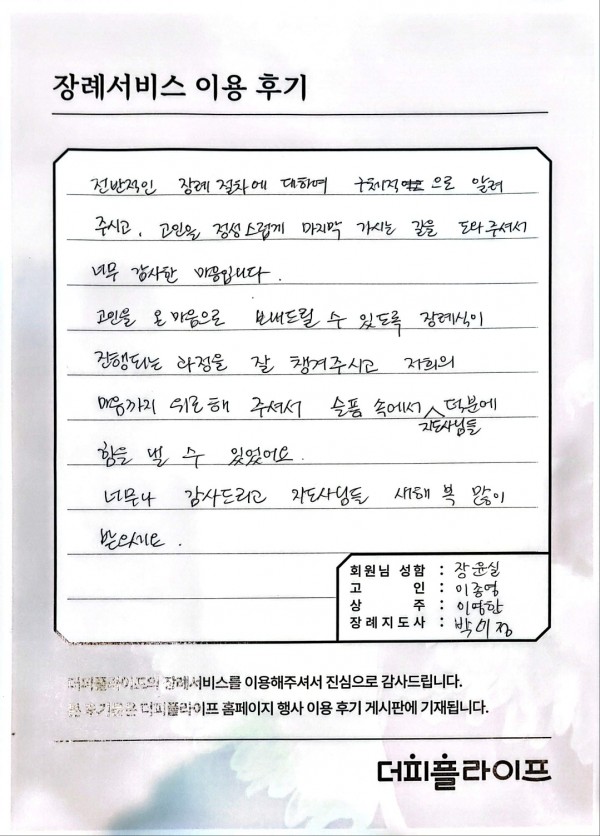 장례서비스 이용 후기
전반적인 장례 절차에 대하여 구체적으로 알려
주시고, 고인을 정성스럽게 마지막 가시는 길을 도와주셔서
너무 감사한 마음입니다.
고인을 온 마음으로 보내드릴 수 있도록 장례식이
진행되는 과정을 잘 챙겨주시고 저희의
마음까지 위로해 주셔서 슬픔 속에서 지도사님들 덕분에
힘을 낼 수 있었어요.
너무나 감사드리고 지도사님들 새해 복 많이
받으세요.
회원님 성함 : 장윤실
고 인 : 이종영
상 주 : 이영한
장례지도사 : 박이정
더피플라이프의 장례서비스를 이용해주셔서 진심으로 감사드립니다.
본 후기글은 더피플라이프 홈페이지 행사 이용 후기 게시판에 기재됩니다.
더피플라이프